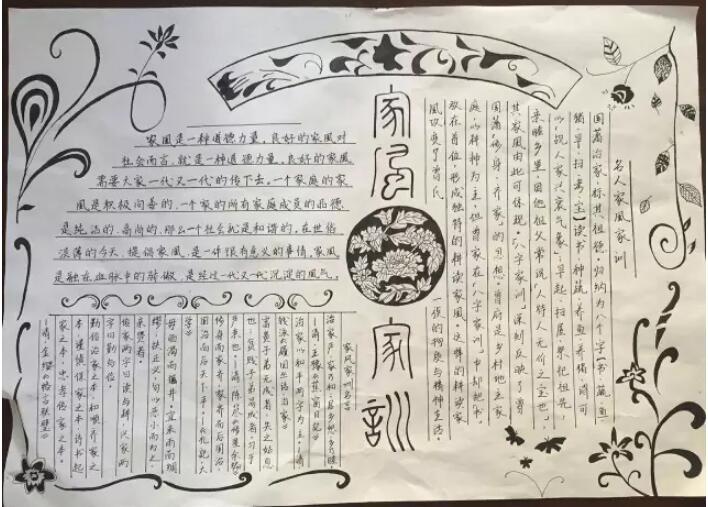 家风家训
家风是一种道德力量,良好的家风对
社会而言,就是一种道德力量,良好的家风
需要大家一代又一代的传下去,一个家庭的家
风是积极向善的,一个家的所有家庭成员的品德
是纯洁的、高尚的,那么一个社会就是和谐的,在世俗
淡薄的今天,提倡家风,是一件很有意义的事情,家风
是融在血脉中的骄傲,是经过一代又一代沉淀的风气。
名人家风家训
国藩治家,标其祖德,归纳为八个字“书、蔬、鱼、
猪、早、扫、考、宝”。读书、种蔬、养鱼、养猪,诗可
以“观人家兴衰气象”。早起、扫屋、祭祀祖先、
亲睦乡里,因他祖父常说“人待人无价之宝也”,
其家风由此可体现。“八字家训”深刻反映了曾
国藩“修身、齐家”的思想。曾府是乡村地主家
庭,以耕种为主,但曾家在“八字家训”中却把“书”
放在首位,形成独特的耕读家风。这样的耕读家
风改变了曾氏
一族的物质与精神生活。
家风家训名言
治家严,家乃和;居乡恕,乡乃睦。
—清·王豫《蕉窗日记》
治家以和平两字为主。—清·
钱泳《履园丛话·治家》
富贵子弟无成者,失之姑息
也;贫贱子弟
严束也。—清·陈
修身而家齐,家齐而后国治,
国治而后天下平。—《礼记·大
学》
毋临渴而掘井,宜未雨而绸
缪。
传家两字曰读与耕,兴家两
字曰勤与俭。
勤俭治家之本,和顺齐家之
本,谨慎保家之本,诗书起
家之本,忠孝传家之本。
—清·金缨《格言联璧》